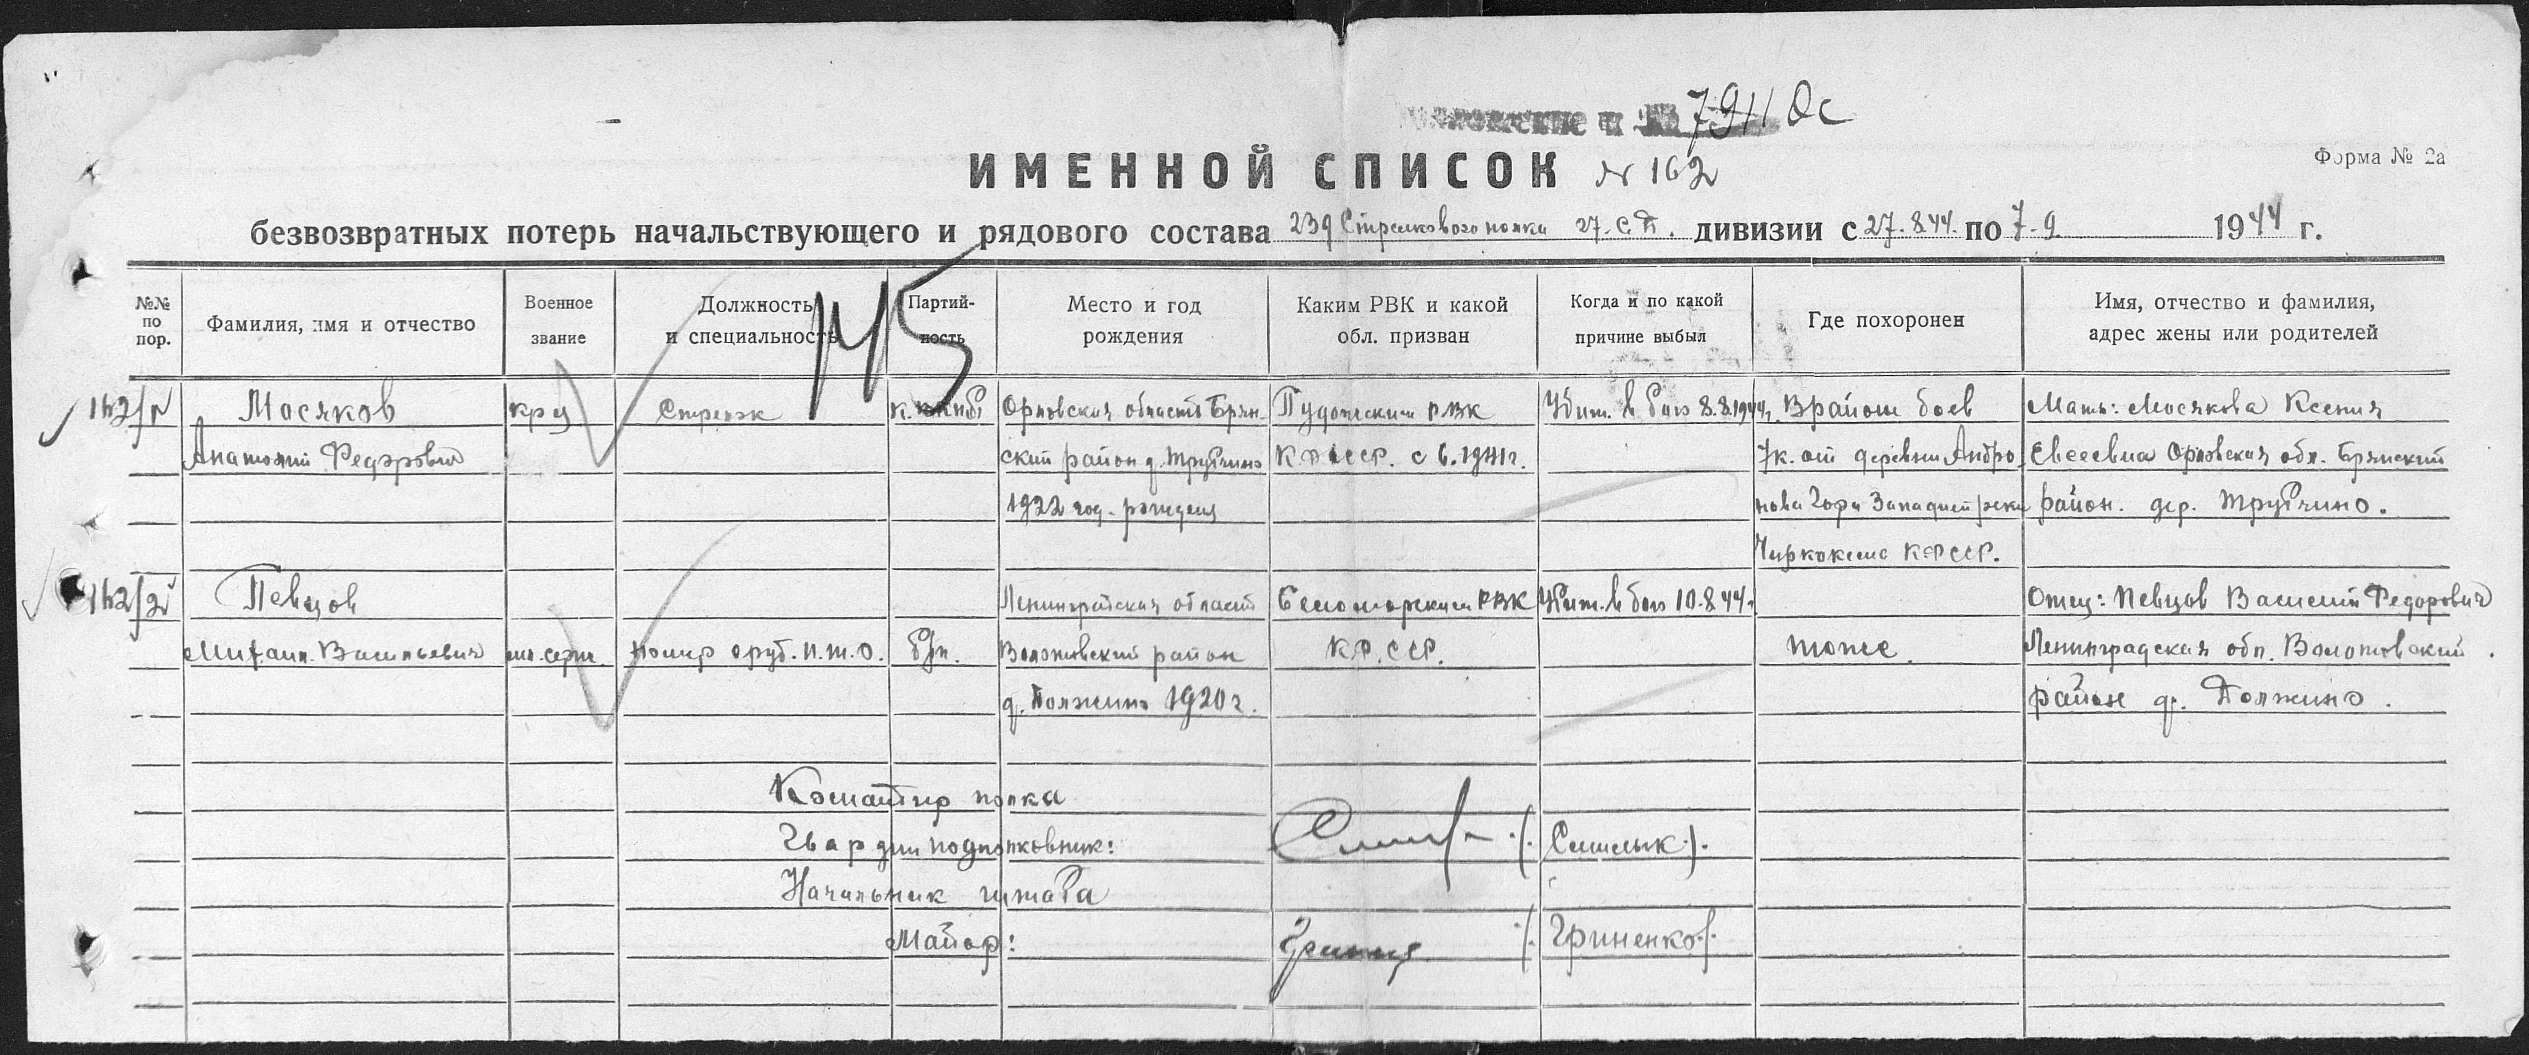 7911 Ос
ИМЕННОЙ СПИСОК № 162
Форма № 2а
безвозвратных потерь начальствующего и рядового состава 239 Стрелкового полка 27. С.Д. дивизии с 27.8.44. по 7.9. 1944 г.
№№ по пор.
Фамилия, имя и отчество
Военное звание
Должность и специальность
Партийность
Место и год рождения
Каким РВК и какой обл. призван
Когда и по какой причине выбыл
Где похоронен
Имя, отчество и фамилия, адрес жены или родителей
145
162/1 Масяков кр-ц Стрелок Орловская область Брян- Пудожским РВК Убит в бою 8.8.1944г. В районе боев Мать: Масякова Ксения
Анатолий Федорович ский район д. Трубчино КФССР. с 6.1941г. 7к. от деревни Андро- Евсеевна Орловская обл. Брянский
1922 год. рождения нова Гора Западней реки район. дер. Трубчино.
Чиркокемо КФССР.
162/2 Певцов Ленинградская область Беломорским РВК Убит. в бою 10.8.44г. Отец: Певцов Василий Федорович
Михаил. Васильевич мл. серж. Номер оруд. П.Т.О. б/п. Волотовский район КФ.ССР. тоже. Ленинградская обл. Волотовский
д. Должино 1920 г. район д. Должино.
Командир полка
Гвардии подполковник: /Смилык/.
Начальник штаба
Майор: /Гриненко/.